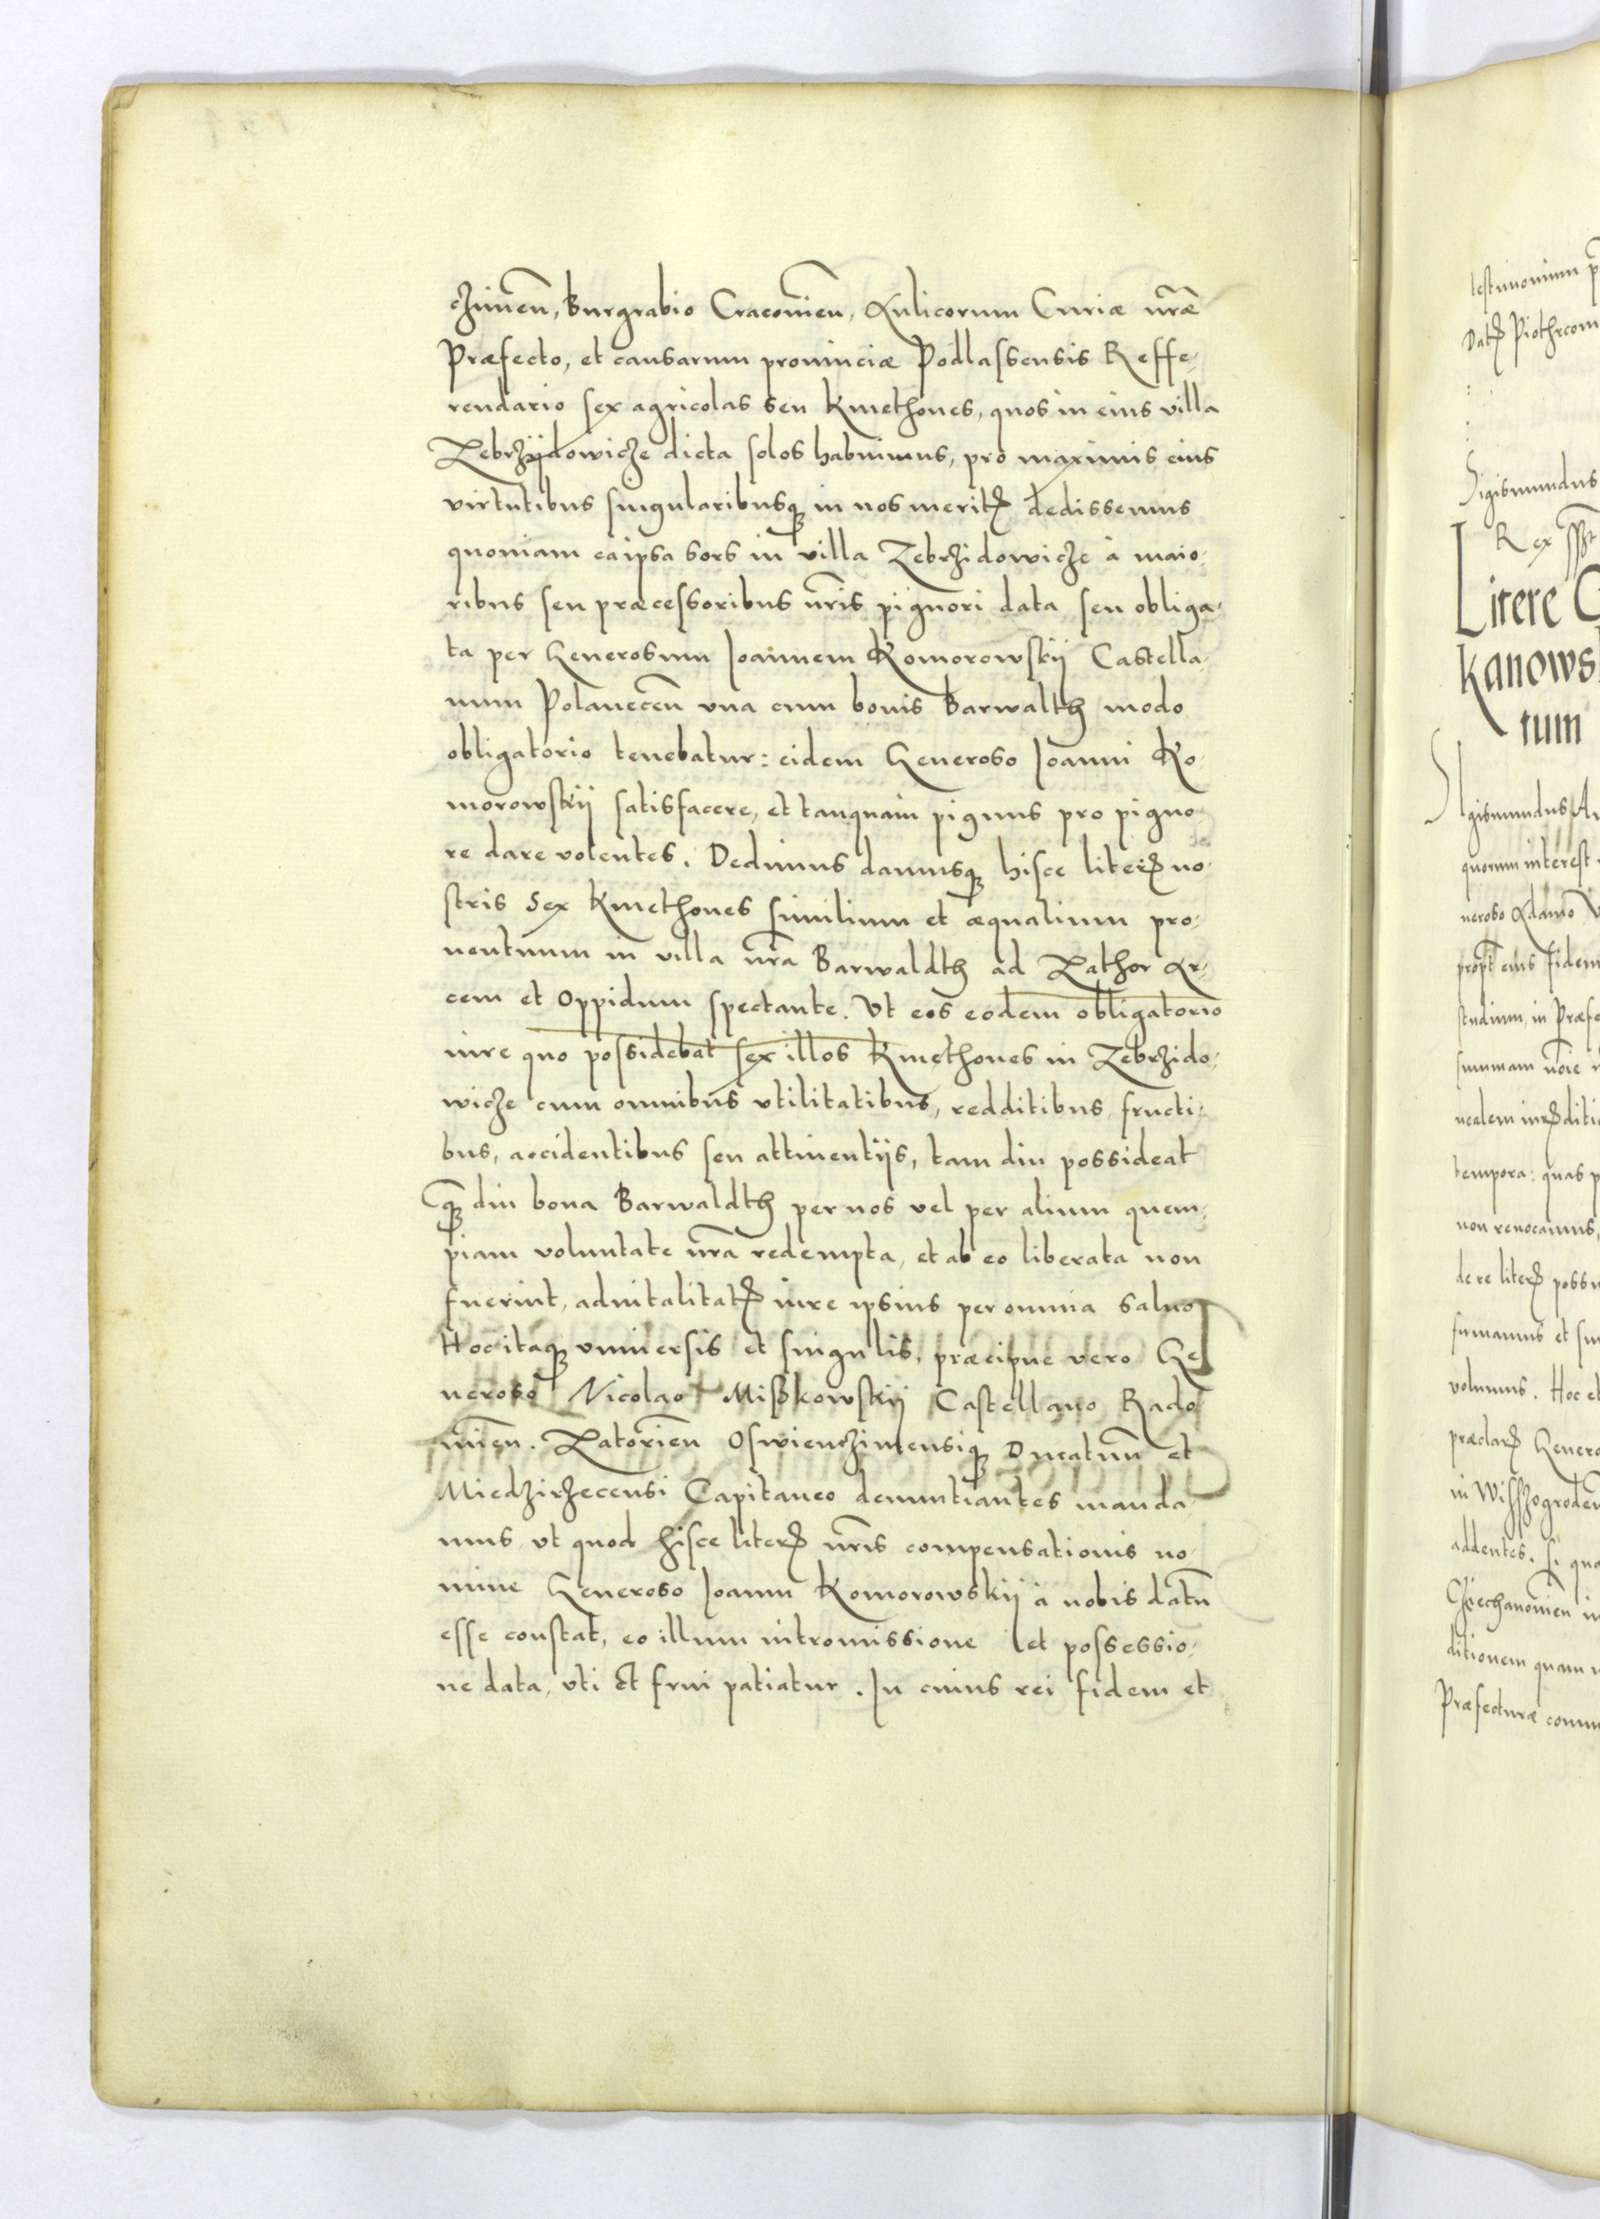 chimen̄, Burgrabio Cracovien̄, Aulicorum Curiæ nr̄æ
Præfecto, et causarum provinciæ Podlassensis Reffe,
rendario sex agricolas seu Kmethones, quos in eius villa
Zebrzÿdowicze dicta solos habuimus, pro maximis eius
virtutibus singularibusqꝫ in nos meritꝭ dedissemus
quoniam ea ipsa sors in villa Zebrzidowicze à maio,
ribus seu præcessoribus nr̄is pignori data seu obliga,
ta per Generosum Joannem Komorowskij Castella,
num Polanecen̄ vna cum bonis Barwalth modo
obligatorio tenebatur: eidem Generoso Joanni Ko
morowskij satisfacere, et tanquam pignus pro pigno
re dare volentes. Dedimus damusqꝫ hisce literꝭ no,
stris Sex Kmethones similium et æqualium pro,
uentuum in villa nr̄a Barwaldth ad Zathor Ar,
cem et Oppidum spectante. Vt eos eodem obligatorio
iure quo possidebat sex illos Kmethones in Zebrzido,
wicze cum omnibus vtilitatibus, redditibus fructi,
bus, accidentibus seu attinentijs, tam diu possideat
qꝫ diu bona Barwaldth per nos vel per alium quem,
piam voluntate nr̄a redempta, et ab eo liberata non
fuerint, aduitalitatꝭ iure ipsius per omnia saluo
Hoc itaqꝫ vniuersis et singulis, præcipue vero Ge
neroso Nicolao Miskowskij Castellano Rado
mien̄. Zatorien̄ Oswienczimensiqꝫ Ducatuū et
Miedzirzecensi Capitaneo denuntiantes manda
mus vt quod hisce literꝭ nr̄is compensationis no
mine Generoso Joanni Komorowskij à nobis datū
esse constat, eo illum intromissione et possessio,
ne data, vti et frui patiatur. In cuius rei fidem et
testimonium
Datꝭ Piothrcow
Sigismundus
Rex
Litere
Kanows
tum
Sigismundus Au
quorum interest
neroso Adamo
eius fidem
studium, in Præfe
summam
tempora: quas p
non reuocamus,
de re literꝭ possu
firmamus et
volumus. Hoc et
præclarꝭ Genero
in Wisszogroden̄
addentes. Si qua
ditionem quam
Præfecturæ comm